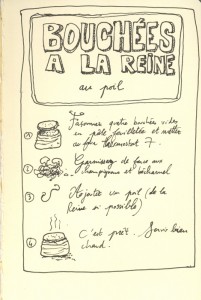 BOUCHÉES
A LA REINE
au poil
1 Façonner quatre bouchées vides
en pâte feuilletée et mettre
au four thermostat 7.
2 Garnissez de farce aux
champignons et béchamel
3 Ajoutez un poil (de la
Reine si possible)
4 C'est prêt. Servir bien
chaud!